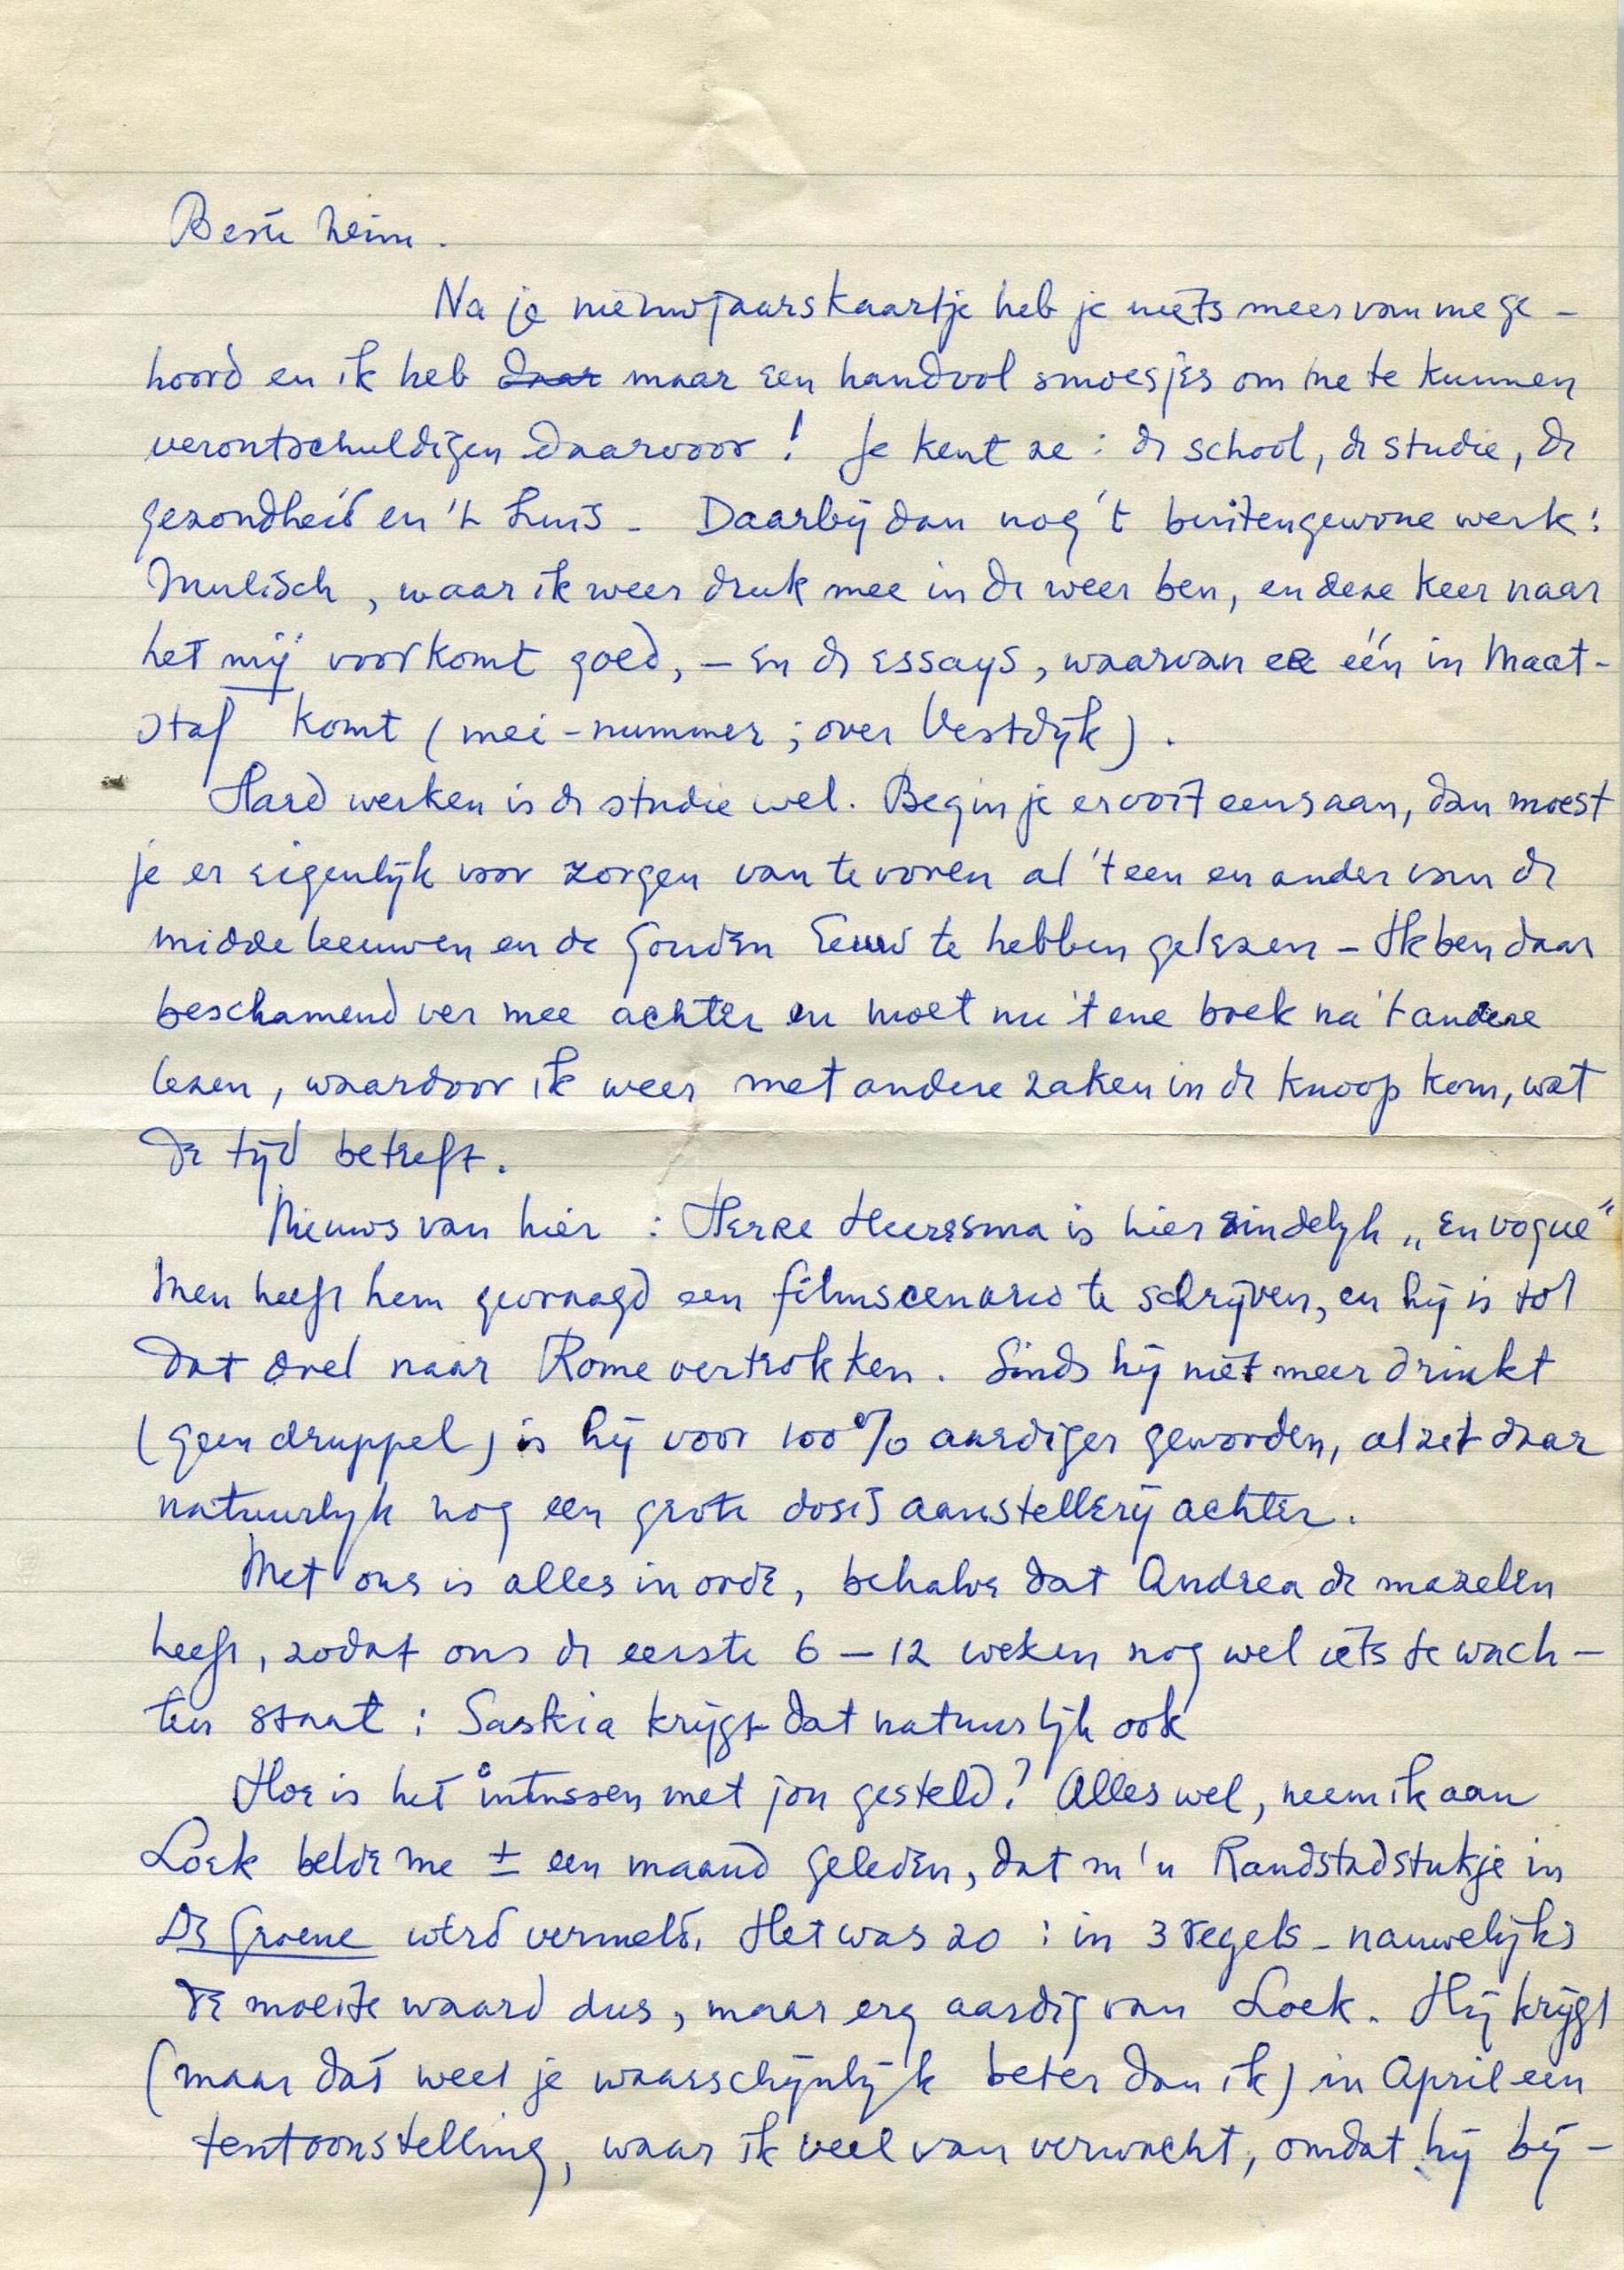 Beste Heim.
Na je nieuwjaarskaartje heb je niets meer van me ge-
hoord en ik heb daar maar een handvol smoesjes om me te kunnen
verontschuldigen daarvoor! Je kent ze: de school, de studie, de
gezondheid en 't huis - Daarbij dan nog 't buitengewone werk:
Mulisch, waar ik weer druk mee in de weer ben, en deze keer naar
het mij voorkomt goed, - en de essays, waarvan er één in Maat-
staf komt (mei-nummer; over Vestdijk).
Hard werken is de studie wel. Begin je er ooit eens aan, dan moest
je er eigenlijk voor zorgen van te voren al 't een en ander van de
middeleeuwen en de Gouden Eeuw te hebben gelezen - Ik ben daar
beschamend ver mee achter en moet nu 't ene boek na 't andere
lezen, waardoor ik weer met andere zaken in de knoop kom, wat
de tijd betreft.
Nieuws van hier: Heere Heeresma is hier eindelijk „en vogue"
Men heeft hem gevraagd een filmscenario te schrijven, en hij is tot
dat doel naar Rome vertrokken. Sinds hij niet meer drinkt
(geen druppel) is hij voor 100% aardiger geworden, al zit daar
natuurlijk nog een grote dosis aanstellerij achter.
Met ons is alles in orde, behalve dat Andrea de mazelen
heeft, zodat ons de eerste 6-12 weken nog wel iets te wach-
ten staat: Saskia krijgt dat natuurlijk ook
Hoe is het intussen met jou gesteld? Alles wel, neem ik aan
Loek belde me ± een maand geleden, dat m'n Randstadstukje in
De Groene werd vermeld. Het was zo: in 3 regels - nauwelijks
de moeite waard dus, maar erg aardig van Loek. Hij krijgt
(maar dat weet je waarschijnlijk beter dan ik) in April een
tentoonstelling, waar ik veel van verwacht, omdat hij bij-